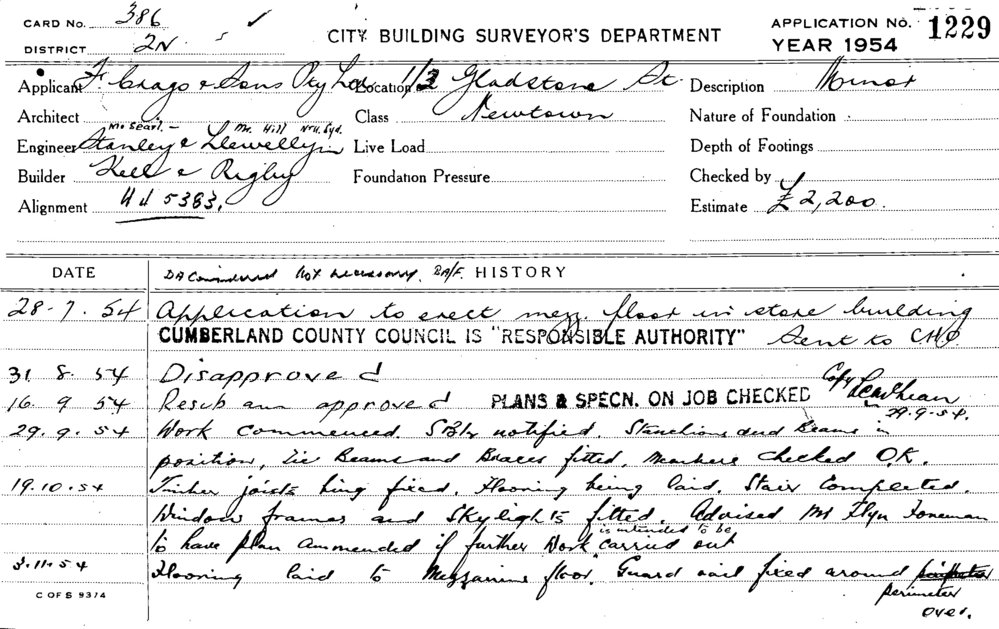 CARD NO. 386
DISTRICT 2N
CITY BUILDING SURVEYOR'S DEPARTMENT
APPLICATION No. 1229
YEAR 1954
Applicant F. Crago & Sons Pty Ltd
Location 1/3 Gladstone St.
Description Minor
Architect
Class Newtown
Nature of Foundation
Mr Searl. - Mr. Hill Nth. Syd.
Engineer Stanley & Llewellyn
Live Load
Depth of Footings
Builder Kell & Rigby
Foundation Pressure
Checked by
Alignment 5383.
Estimate £2,200.
DATE
DA Considered Not necessary. HISTORY
28.7.54 Application to erect mezz. floor in store building
CUMBERLAND COUNTY COUNCIL IS "RESPONSIBLE AUTHORITY" Sent to CHO
31 8. 54 Disapproved
16. 9 54 Resub ann approved PLANS & SPECN. ON JOB CHECKED Copy
29.9.54.
29. 9. 54 Work commenced. notified. Stanchions and Beams in
position, Tie Beams and Braces fitted, members checked O.K.
19.10.54 Timber joists being fixed. Flooring being laid. Stair Completed.
Window frames and Skylights fitted. Advised Mr Flyn Foreman
is intended to be
to have plan ammended if further work carried out
3.11.54 Flooring laid to Mezzanine floor. Guard rail fixed around
perimeter
over.
C OF S 9374